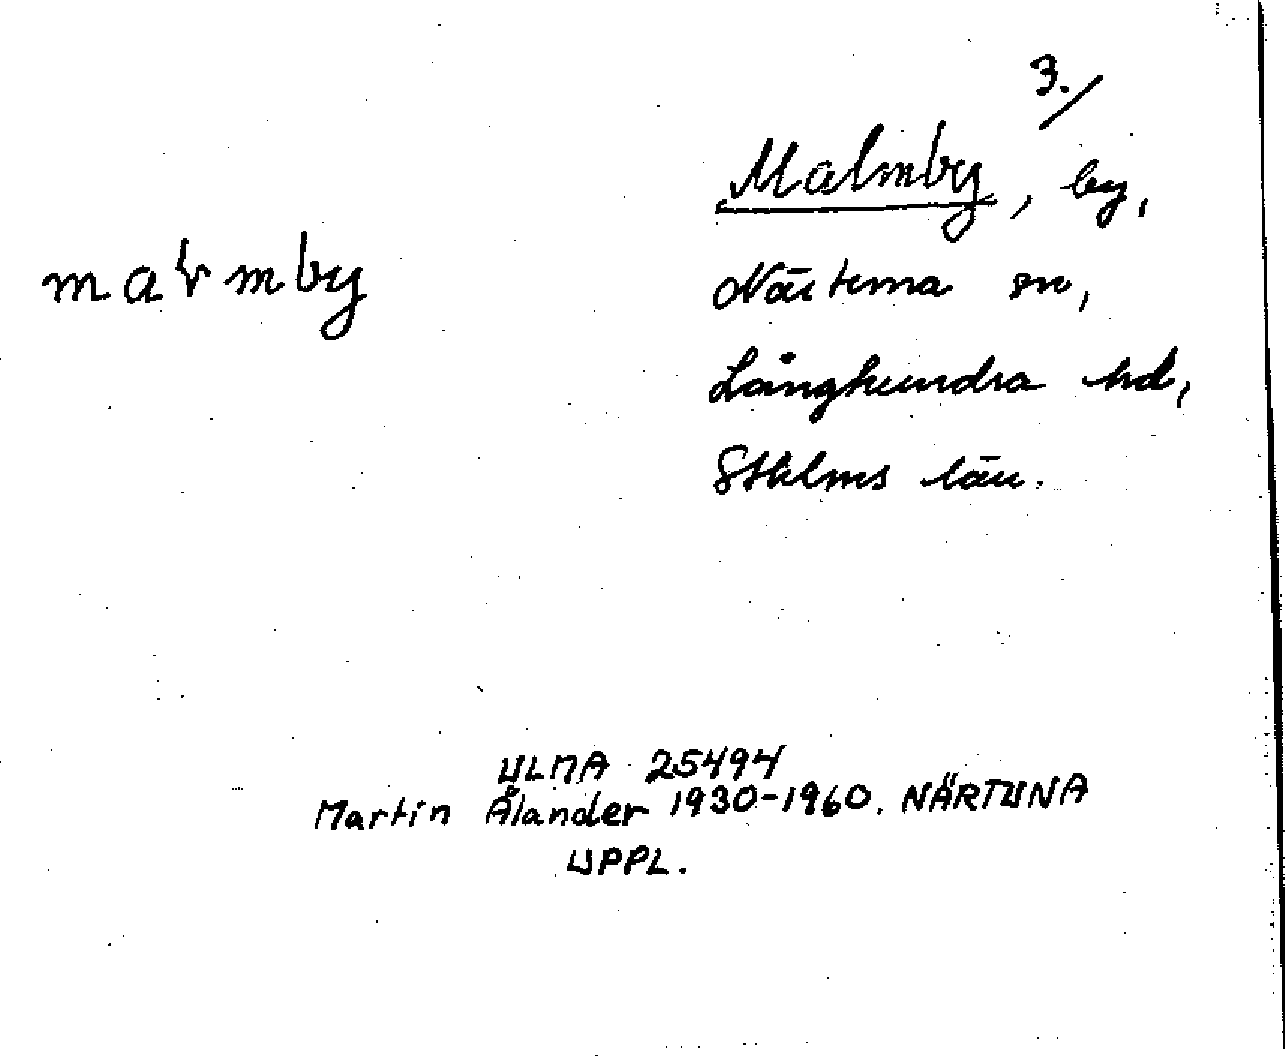 3./
Malmby, by,
Närtuna sn,
Långhundra hd,
Sthlms län.
ULMA 25494
Martin Ålander 1930-1960. NÄRTUNA
UPPL.